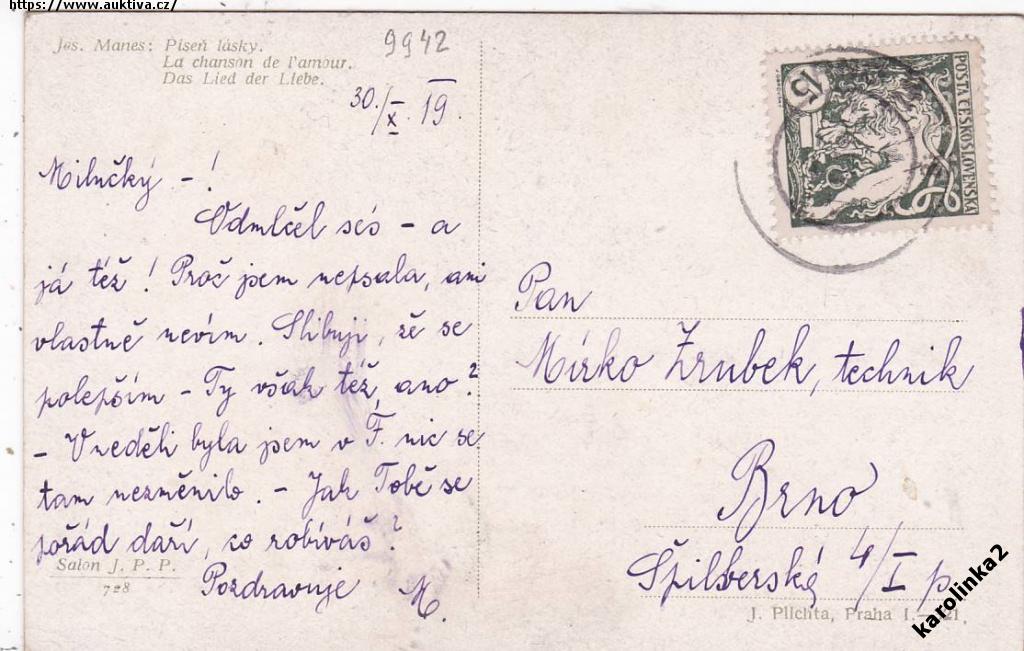 https://www.auktiva.cz/
Jos. Manes: Píseň lásky.
La chanson de l'amour.
Das Lied der Liebe.
9942
30./X. 19.
Milučký - !
Odmlčel ses - a
já též! Proč jsem nepsala, ani
vlastně nevím. Slibuji, že se
polepším - Ty však též, ano?
- V neděli byla jsem v F. nic se
tam nezměnilo. - Jak Tobě se
pořád daří, co robíváš?
Pozdravuje M.
Salon J. P. P.
728
POŠTA ČESKOSLOVENSKÁ
15
Pan
Mirko Zrubek, technik
Brno
Špilberský 4/I p.
J. Plichta, Praha I.-
karolinka2